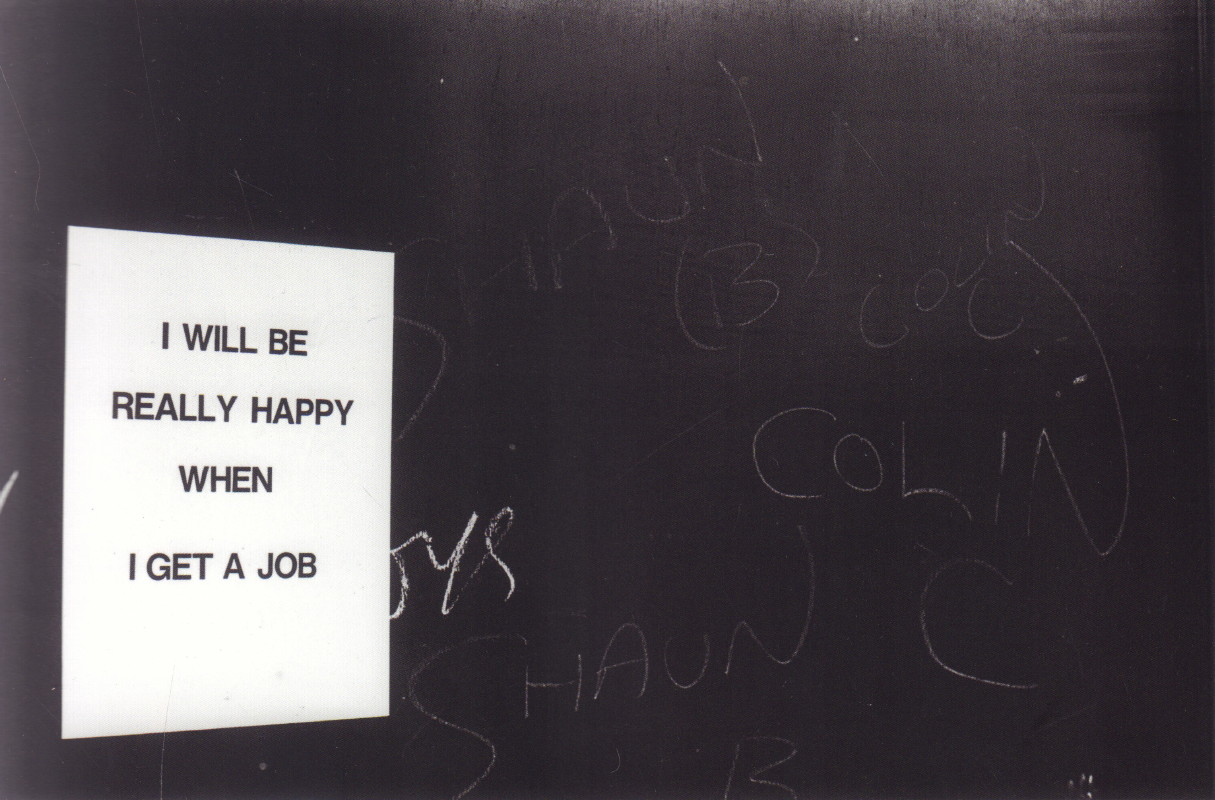 I WILL BE
REALLY HAPPY
WHEN
I GET A JOB
SHAUN
B
COLIN
C
SHAUN
B